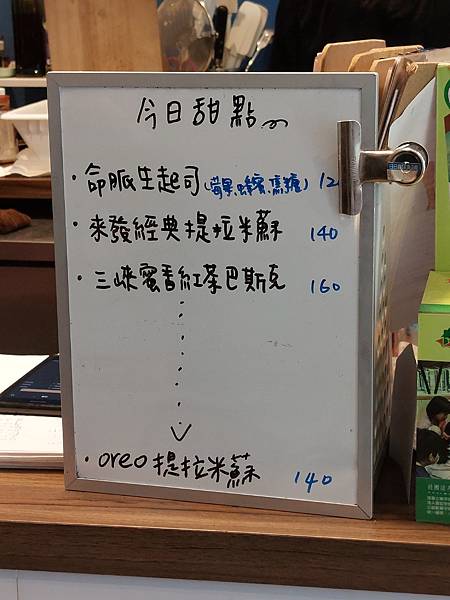 今日甜點
·命脈生起司(莓果,蜂蜜,黑糖) 12
·來發經典提拉米蘇 140
·三峽蜜香紅茶巴斯克 160
·oreo提拉米蘇 140